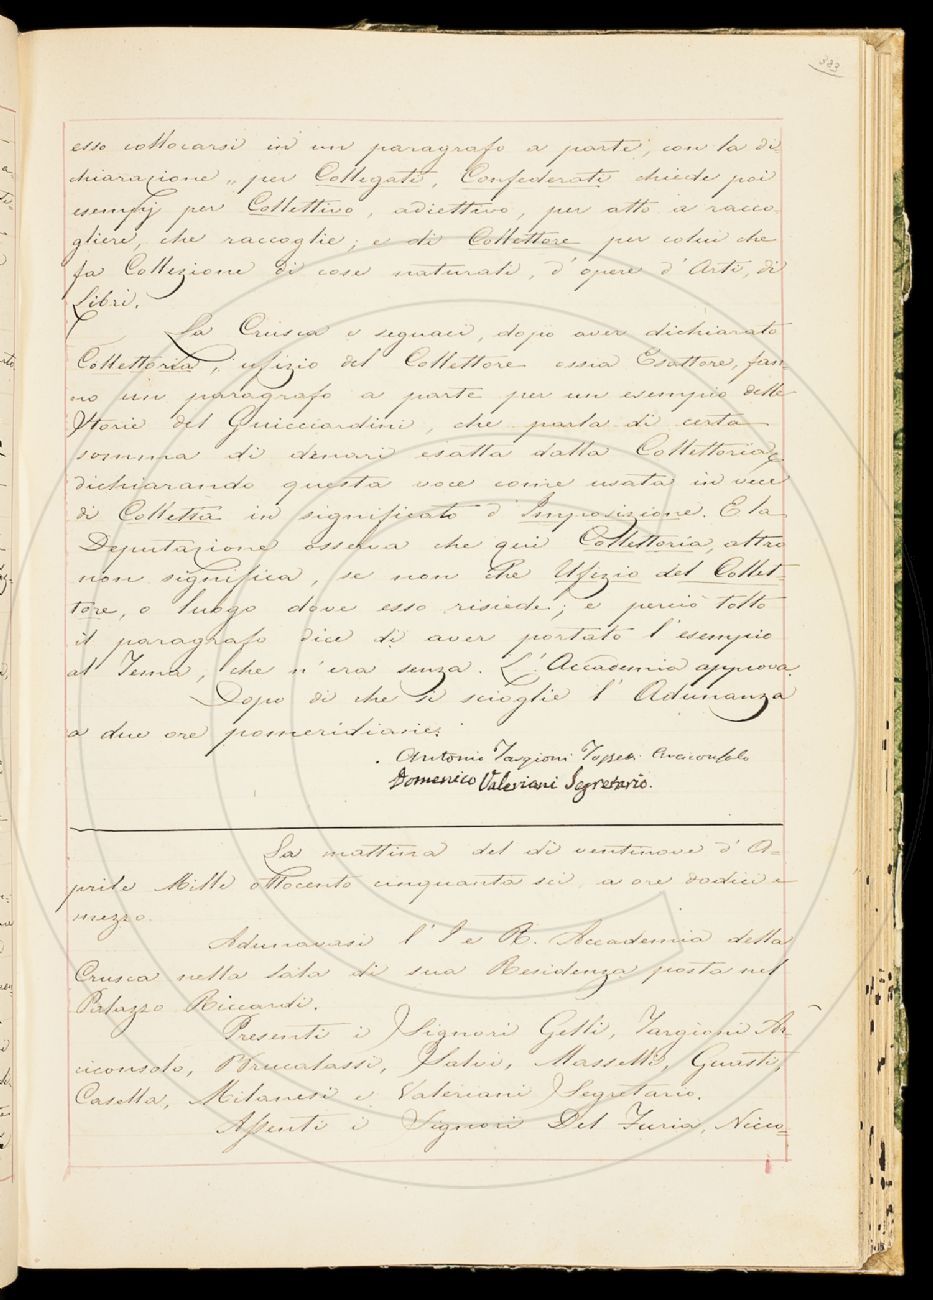 383
esso collocarsi in un paragrafo a parte, con la di-
chiarazione „ per Collegati, Confederati chiede poi
esempj per Collettivo, adiettivo, per atto a racco-
gliere, che raccoglie; e di Collettore per colui che
fa Collezione di cose naturali, d'opere d'Arti, di
Libri.
La Crusca e seguaci, dopo aver dichiarato
Collettoria, ufizio del Collettore ossia Esattore, fan-
no un paragrafo a parte per un esempio delle
Storie del Guicciardini, che parla di certa
somma di denari esatta dalla Collettoria,
dichiarando questa voce come usata in vece
di Colletta in significato d'Imposizione. E la
Deputazione osserva che qui Collettoria, altro
non significa, se non che Ufizio del Collet-
tore, o luogo dove esso risiede; e perciò tolto
il paragrafo dice di aver portato l'esempio
al Tema, che n'era senza. L'Accademia approva.
Dopo di che si scioglie l'Adunanza
a due ore pomeridiane.
Antonio Targioni Tozzetti Arciconsolo
Domenico Valeriani Segretario.
La mattina del dì ventinove d'A=
prile Mille ottocento cinquanta sei, a ore dodici e
mezzo.
Adunavasi l'I e R. Accademia della
Crusca nella sala di sua Residenza posta nel
Palazzo Riccardi.
Presenti i Signori Gelli, Targioni Ar-
ciconsolo, Brucalassi, Salvi, Masselli, Guasti,
Casella, Milanesi e Valeriani Segretario.
Assenti i Signori Del Furia, Nicco=